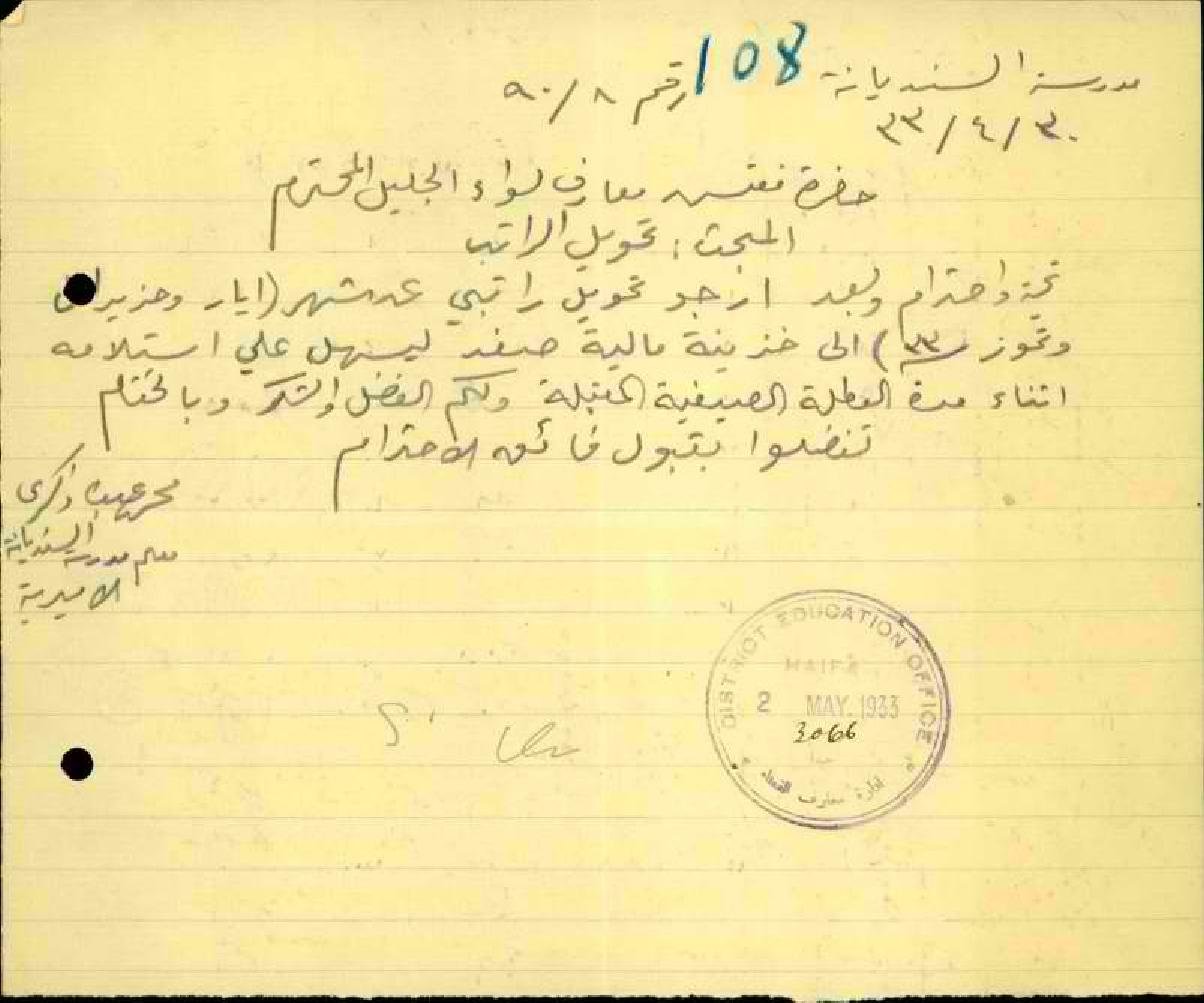 مدرسة السنديانة 108 رقم ٨/٩٠
٣٠/٤/٣٣
حضرة مفتش معارف لواء الجليل المحترم
المبحث : تحويل الراتب
تحية واحترام وبعد ارجو تحويل راتبي عن شهر (ايار وحزيران
وتموز سنة ٣٣) الى خزينة مالية صفد ليسهل علي استلامه
اثناء مدة العطلة الصيفية المقبلة ولكم الفضل والشكر وبالختام
تفضلوا بقبول فائق الاحترام
محمد زكري
معلم مدرسة السنديانة
الاميرية
DISTRICT EDUCATION OFFICE
HAIFA
2 MAY. 1933
3066
ادارة معارف القضاء